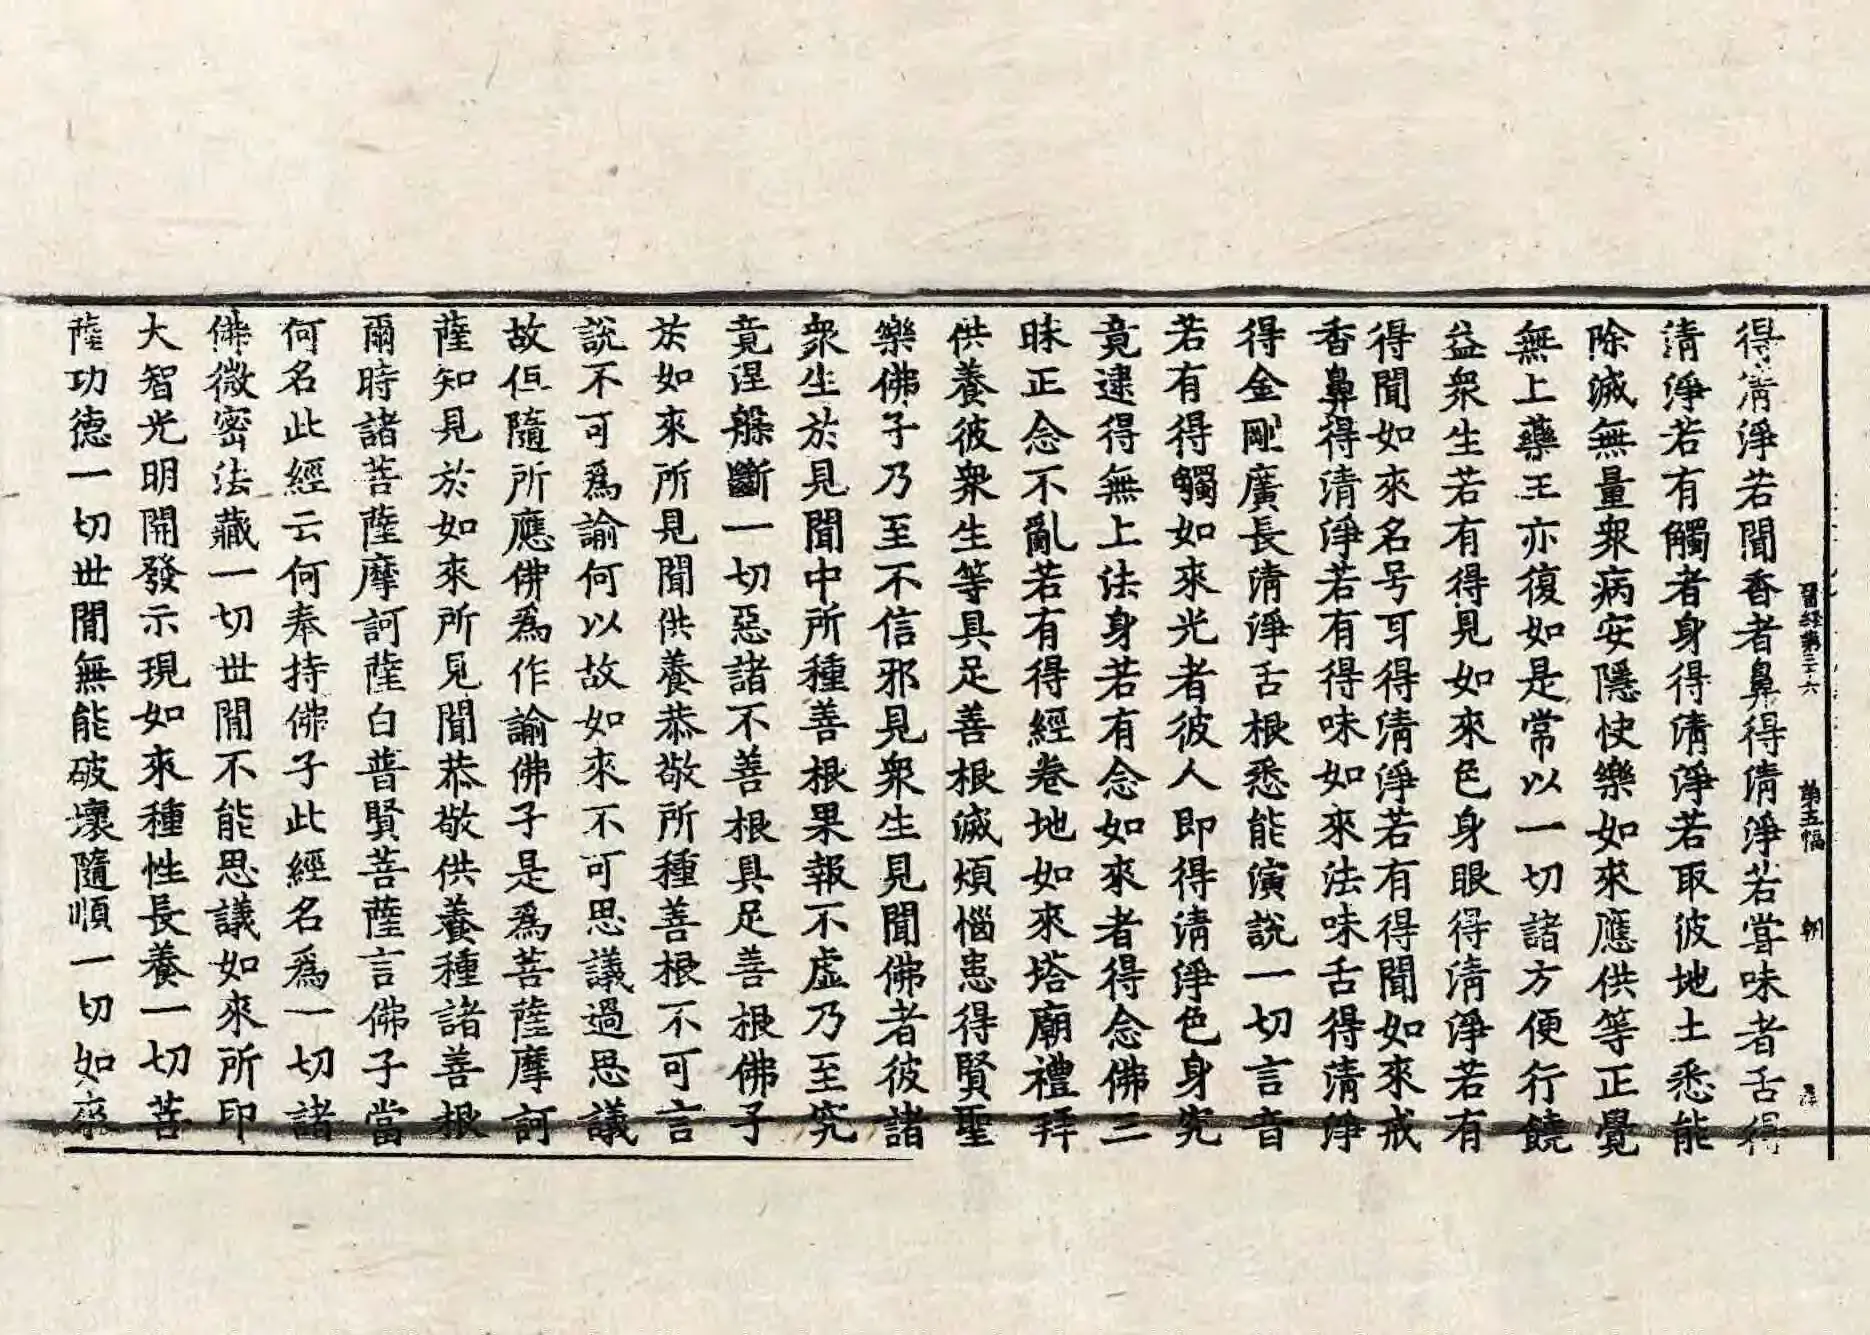 晉經第三十六　第五幅　朝
得清淨若聞香者鼻得清淨若嘗味者舌得
清淨若有觸者身得清淨若取彼地土悉能
除滅無量衆病安隱快樂如來應供等正覺
無上藥王亦復如是常以一切諸方便行饒
益衆生若有得見如來色身眼得清淨若有
得聞如來名号耳得清淨若有得聞如來戒
香鼻得清淨若有得味如來法味舌得清淨
得金剛廣長清淨舌根悉能演説一切言音
若有得觸如來光者彼人即得清淨色身究
竟逮得無上法身若有念如來者得念佛三
昧正念不亂若有得經卷地如來塔廟禮拜
供養彼衆生等具足善根滅煩惱患得賢聖
樂佛子乃至不信邪見衆生見聞佛者彼諸
衆生於見聞中所種善根果報不虛乃至究
竟涅槃斷一切惡諸不善根具足善根佛子
於如來所見聞供養恭敬所種善根不可言
説不可爲諭何以故如來不可思議過思議
故但隨所應佛爲作諭佛子是爲菩薩摩訶
薩知見於如來所見聞恭敬供養種諸善根
爾時諸菩薩摩訶薩白普賢菩薩言佛子當
何名此經云何奉持佛子此經名爲一切諸
佛微密法藏一切世間不能思議如來所印
大智光明開發示現如來種性長養一切菩
薩功德一切世間無能破壞隨順一切如來